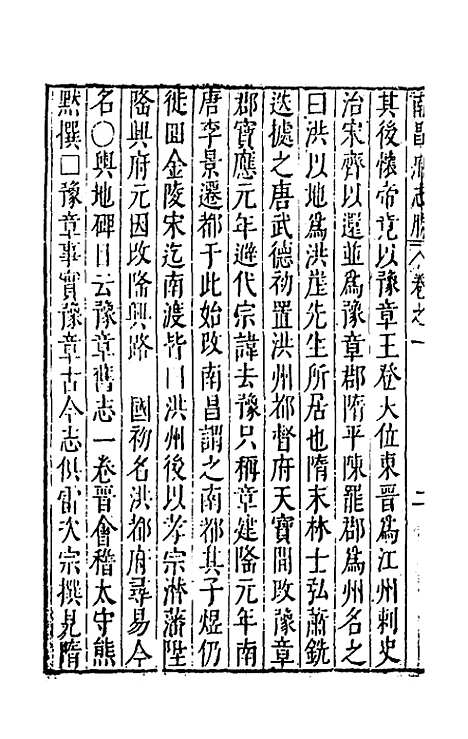 南昌府志勝 卷之一 二
其後懷帝竟以豫章王登大位東晉為江州刺史
治宋齊以還並為豫章郡隋平陳罷郡為州名之
曰洪以地為洪崖先生所居也隋末林士弘蕭銑
迭據之唐武德初置洪州都督府天寶間改豫章
郡寶應元年避代宗諱去豫只稱章建隆元年南
唐李景遷都于此始改南昌謂之南都其子煜仍
徙回金陵宋迄南渡皆曰洪州後以孝宗淋藩陞
隆興府元因改隆興路 國初名洪都府尋易今
名○輿地碑目云豫章舊志一卷晉會稽太守熊
默撰□豫章事實豫章古今志俱雷次宗撰見隋